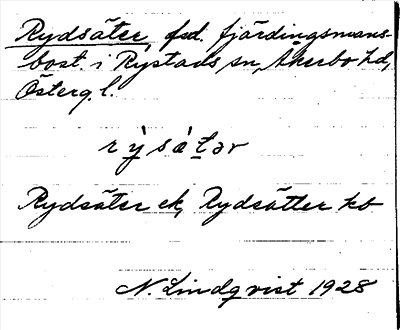 Rydsäter, fsd. fjärdingsmans-
bost. i Rystads sn, Åkerbo hd,
Österg. l.
rỳsátər
Rydsäter ek, Rydsätter kb
N. Lindqvist 1928